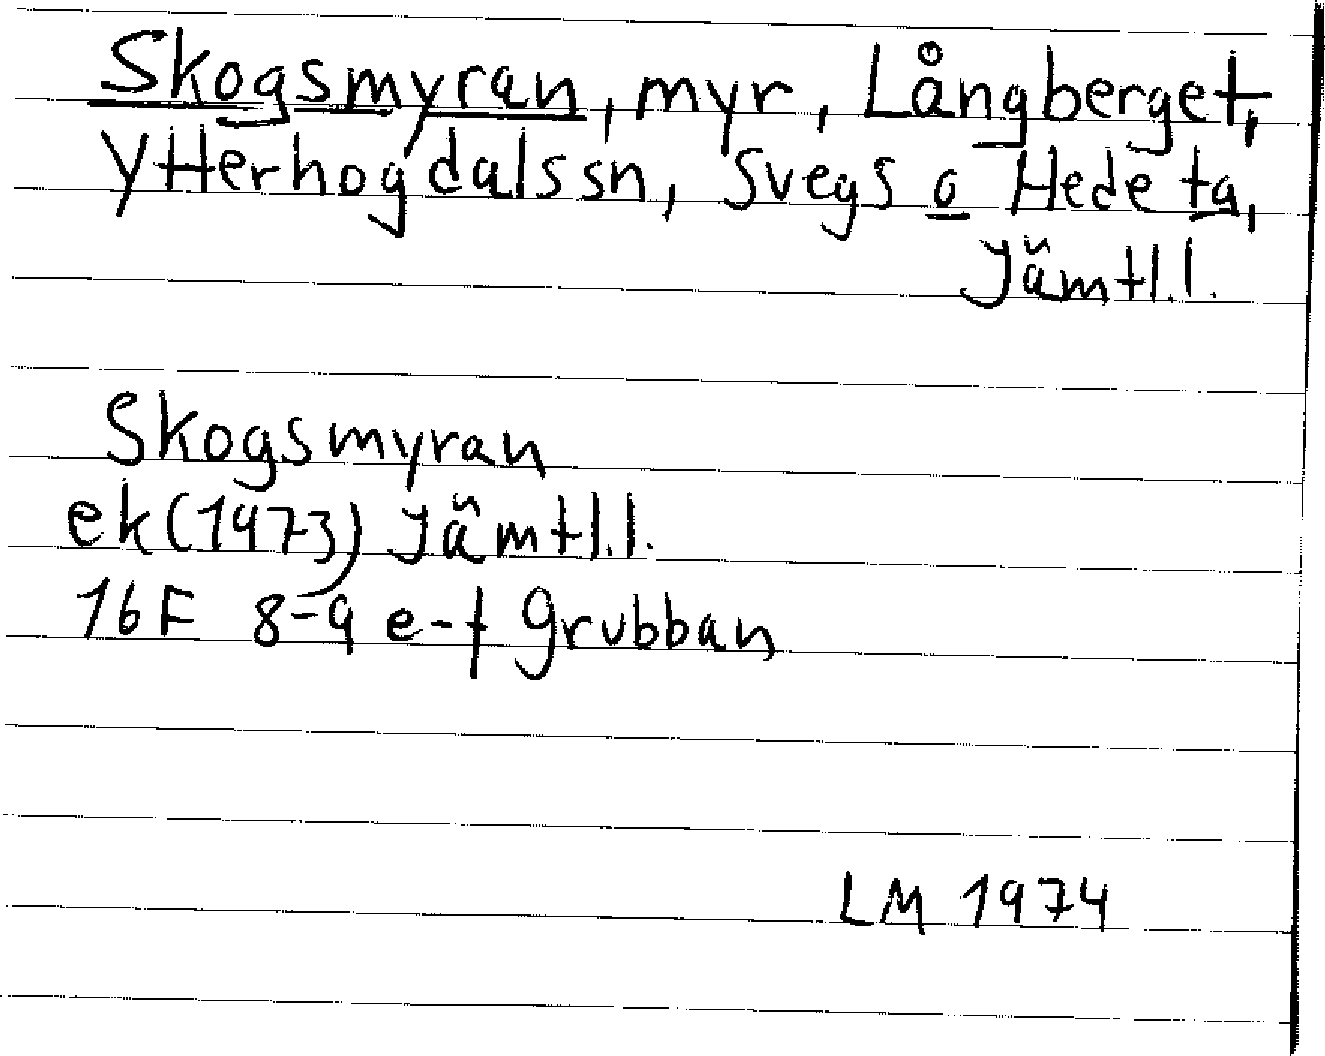 Skogsmyran, myr, Långberget,
Ytterhogdalssn, Svegs o Hede ta,
Jämtl.l.
Skogsmyran
ek(1973) Jämtl.l.
16F 8-9 e-f Grubban
LM 1974